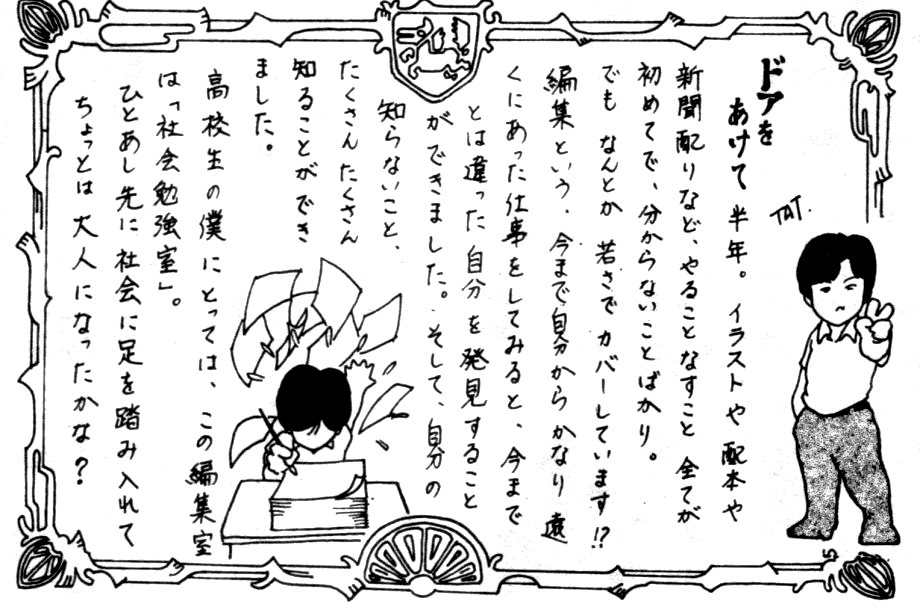 ドアを
あけて半年。イラストや配本や
新聞配りなど、やることなすこと全てが
初めてで、分からないことばかり。
でもなんとか若さでカバーしています!?
編集という、今まで自分からかなり遠
くにあった仕事をしてみると、今まで
とは違った自分を発見すること
ができました。そして、自分の
知らないこと、
たくさんたくさん
知ることができ
ました。
高校生の僕にとっては、この編集室
は「社会勉強室」。
ひとあし先に社会に足を踏み入れて
ちょっとは大人になったかな?
TAT.